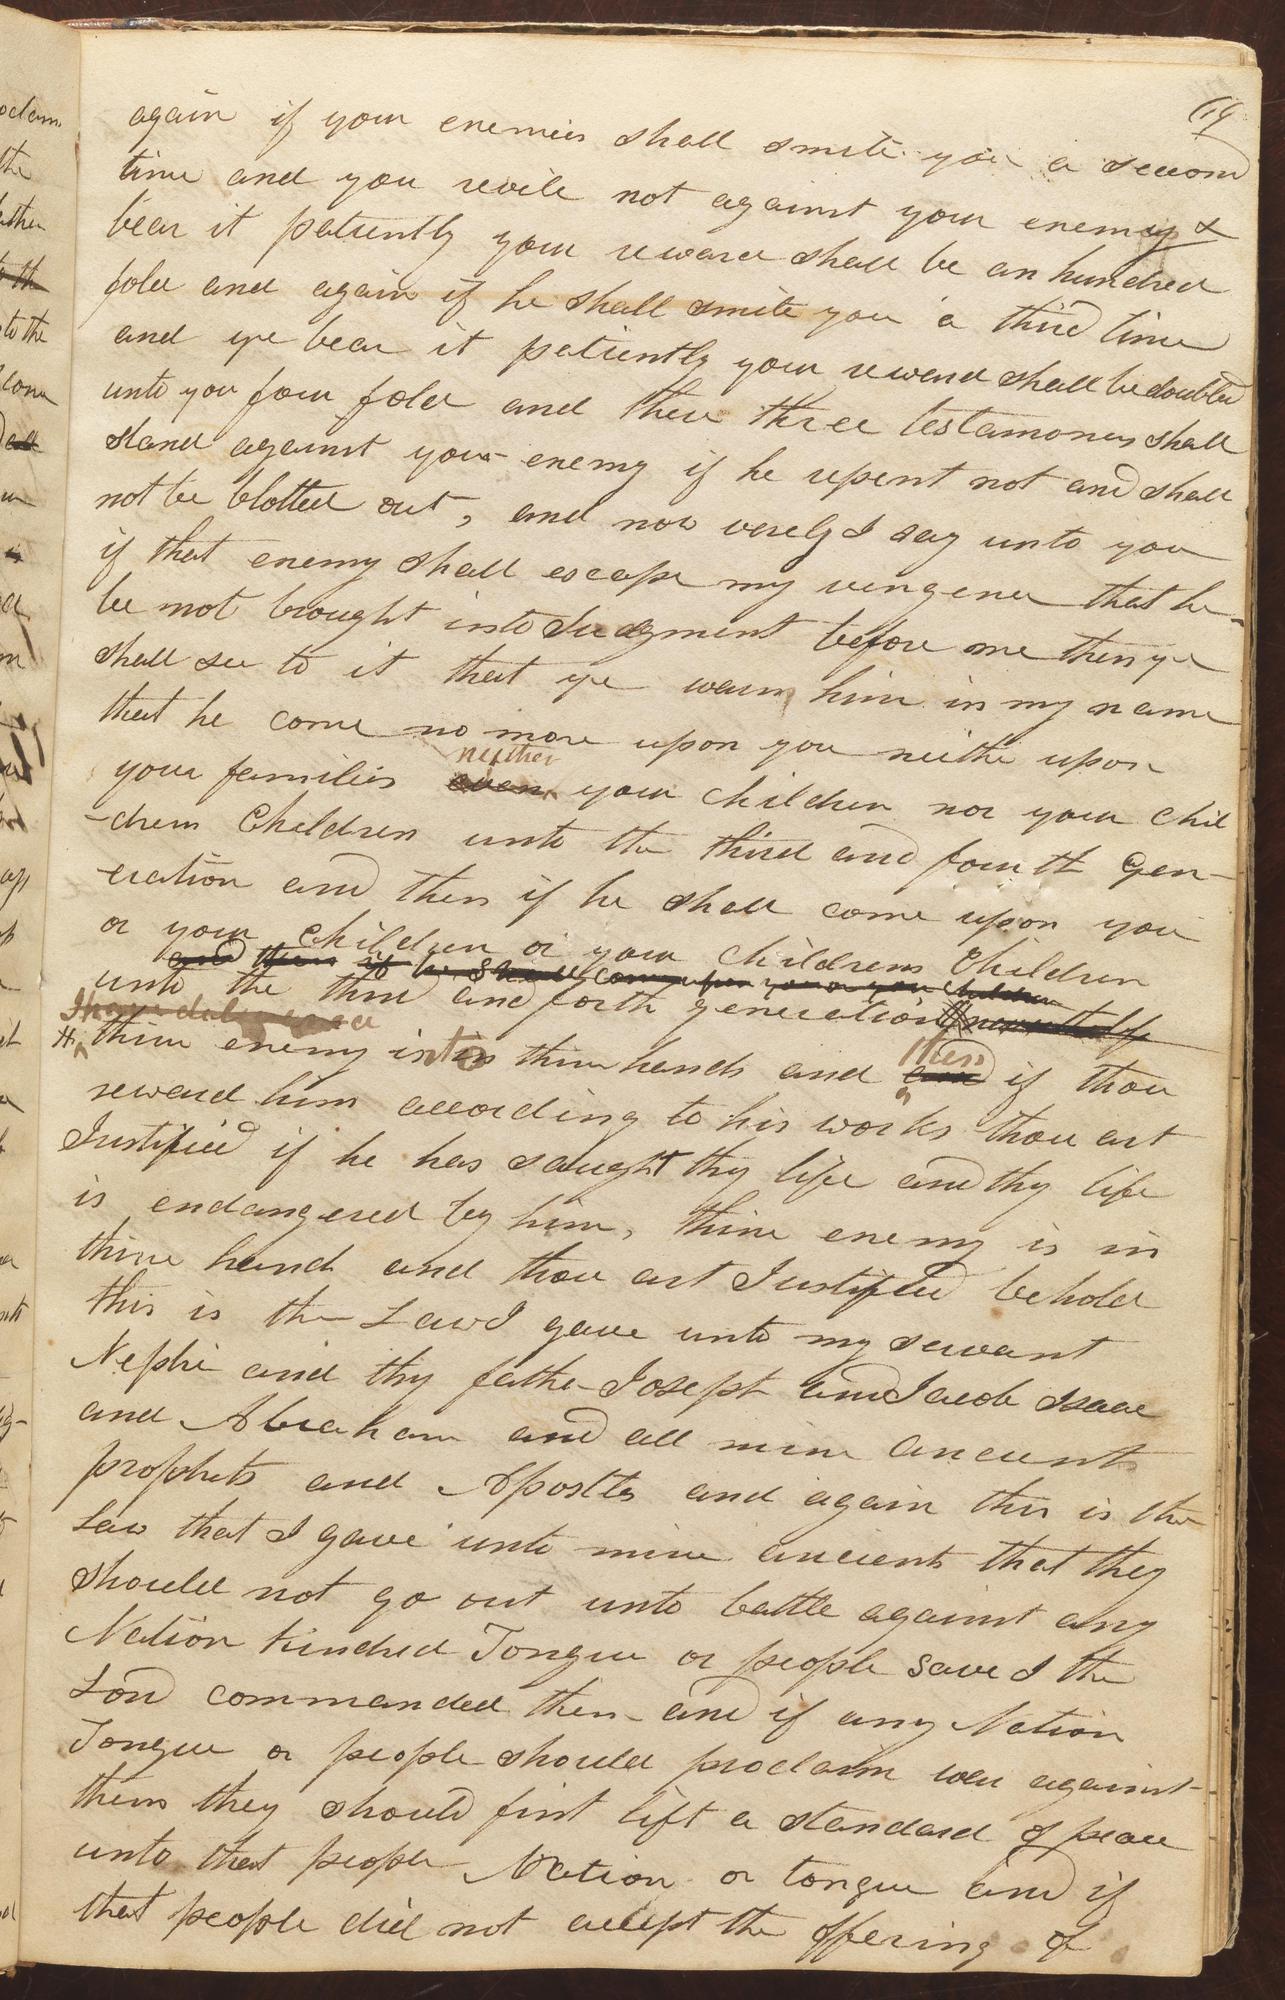 69
again if your enemies shall smite you a second
time and you revile not against your enemy &
bear it patiently your reward shall be an hundred
fold and again if he shall smite you a third time
and ye bear it patiently your reward shall be doubled
unto you four fold and these three testamones shall
stand against your enemy if he repent not and shall
not be blotted out, and now verely I say unto you
if that enemy shall escape my vengence that he
be not brought into Judgment before me then ye
shall see to it that ye warn him in my name
that he come no more upon you neithe upon
neither
your families even your children nor your chil
-dren Children unto the third and fourth Gen-
eration and then if he shall come upon you
or your children or your childrens Children
and then if he Shall come upon you or you children
unto the third and forth generation
thine enemy into thine hands and then if thou
reward him according to his works thou art
Justified if he has saught thy life and thy life
is endangered by him, thine enemy is in
thine hand and thou art Justified behold
this is the Law I gave unto my servant
Nephi and thy fathe Joseph and Jacob Isaac
and Abraham and all mine ancient
prophets and Apostles and again this is the
Law that I gave unto mine ancients that they
should not go out unto battle against any
Nation Kindred Tongue or people save I the
Lord commanded them and if any Nation
Tongue or people should proclaim war against
them they should first lift a standard of peace
unto that people Nation or tongue and if
that people did not accept the offering of